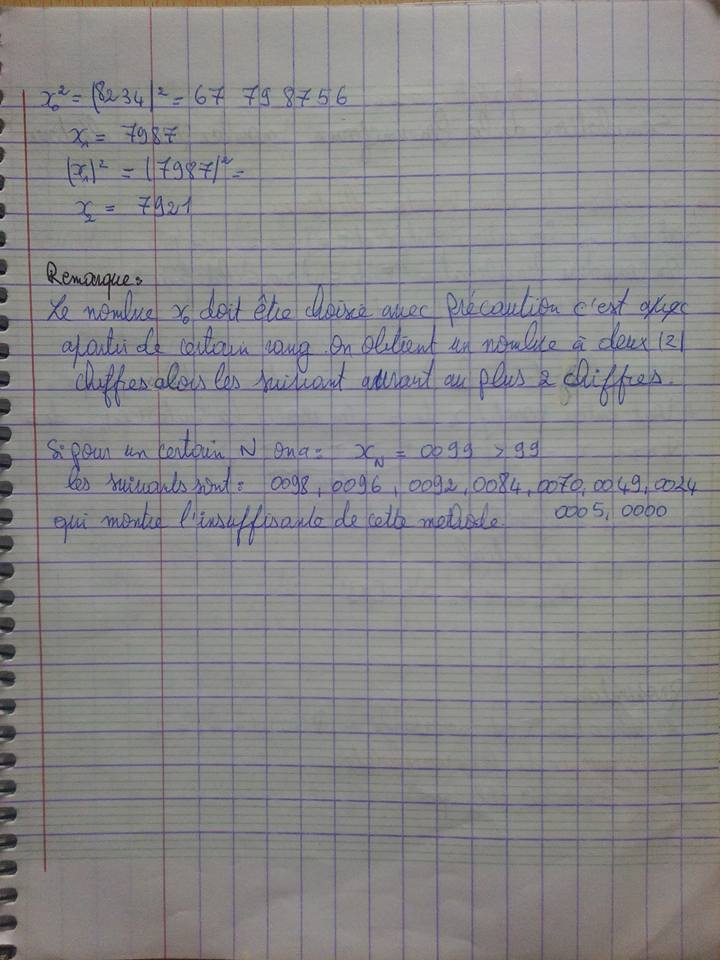 x₀² = (8234)² = 67 79 8756
x₁ = 7987
(x₁)² = (7987)² =
x₂ = 7921
Remarque:
Le nombre x₀ doit être choixe avec précaution c'est
apartir de certain rang. On obtient un nombre à deux (2)
chiffres alois les suivant auront au plus 2 chiffres.
Si pour un certain N ona: x_N = 0099 > 99
les suivants sont: 0098, 0096, 0092, 0084, 0070, 0049, 0024
0005, 0000
qui montre l'insuffisante de cette methode.